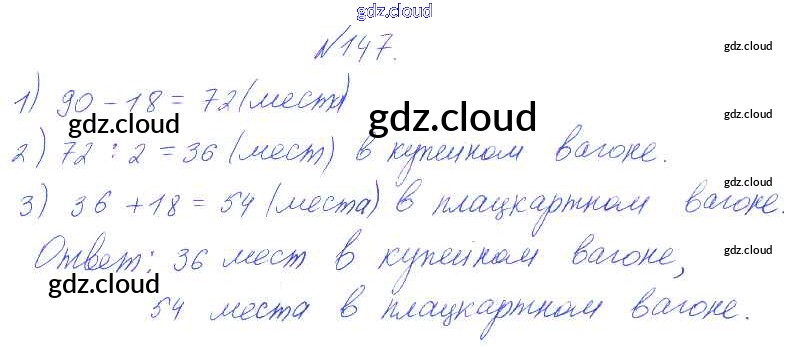 gdz.cloud
№147.
gdz.cloud
1) 90 - 18 = 72 (места)
gdz.cloud
gdz.cloud
gdz.cloud
2) 72 : 2 = 36 (мест) в купейном вагоне.
gdz.cloud
3) 36 + 18 = 54 (места) в плацкартном вагоне.
Ответ: 36 мест в купейном вагоне,
gdz.cloud
gdz.cloud
gdz.cloud
54 места в плацкартном вагоне.
gdz.cloud